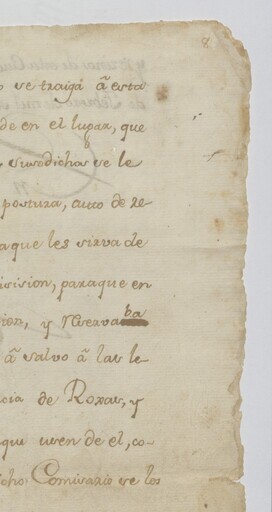 8
o se traiga â esta
de en el lugar, que
susodichas se le
postura, auto de re-
aque les sirva de
icision, paraque en
ion, y reservaba
â salvo â las le-
cia de Roxas, y
qui usen de el, co-
icho Comisario se los